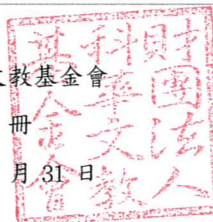 教基金會
冊
月 31 日
財團法人
科
文教
基金會